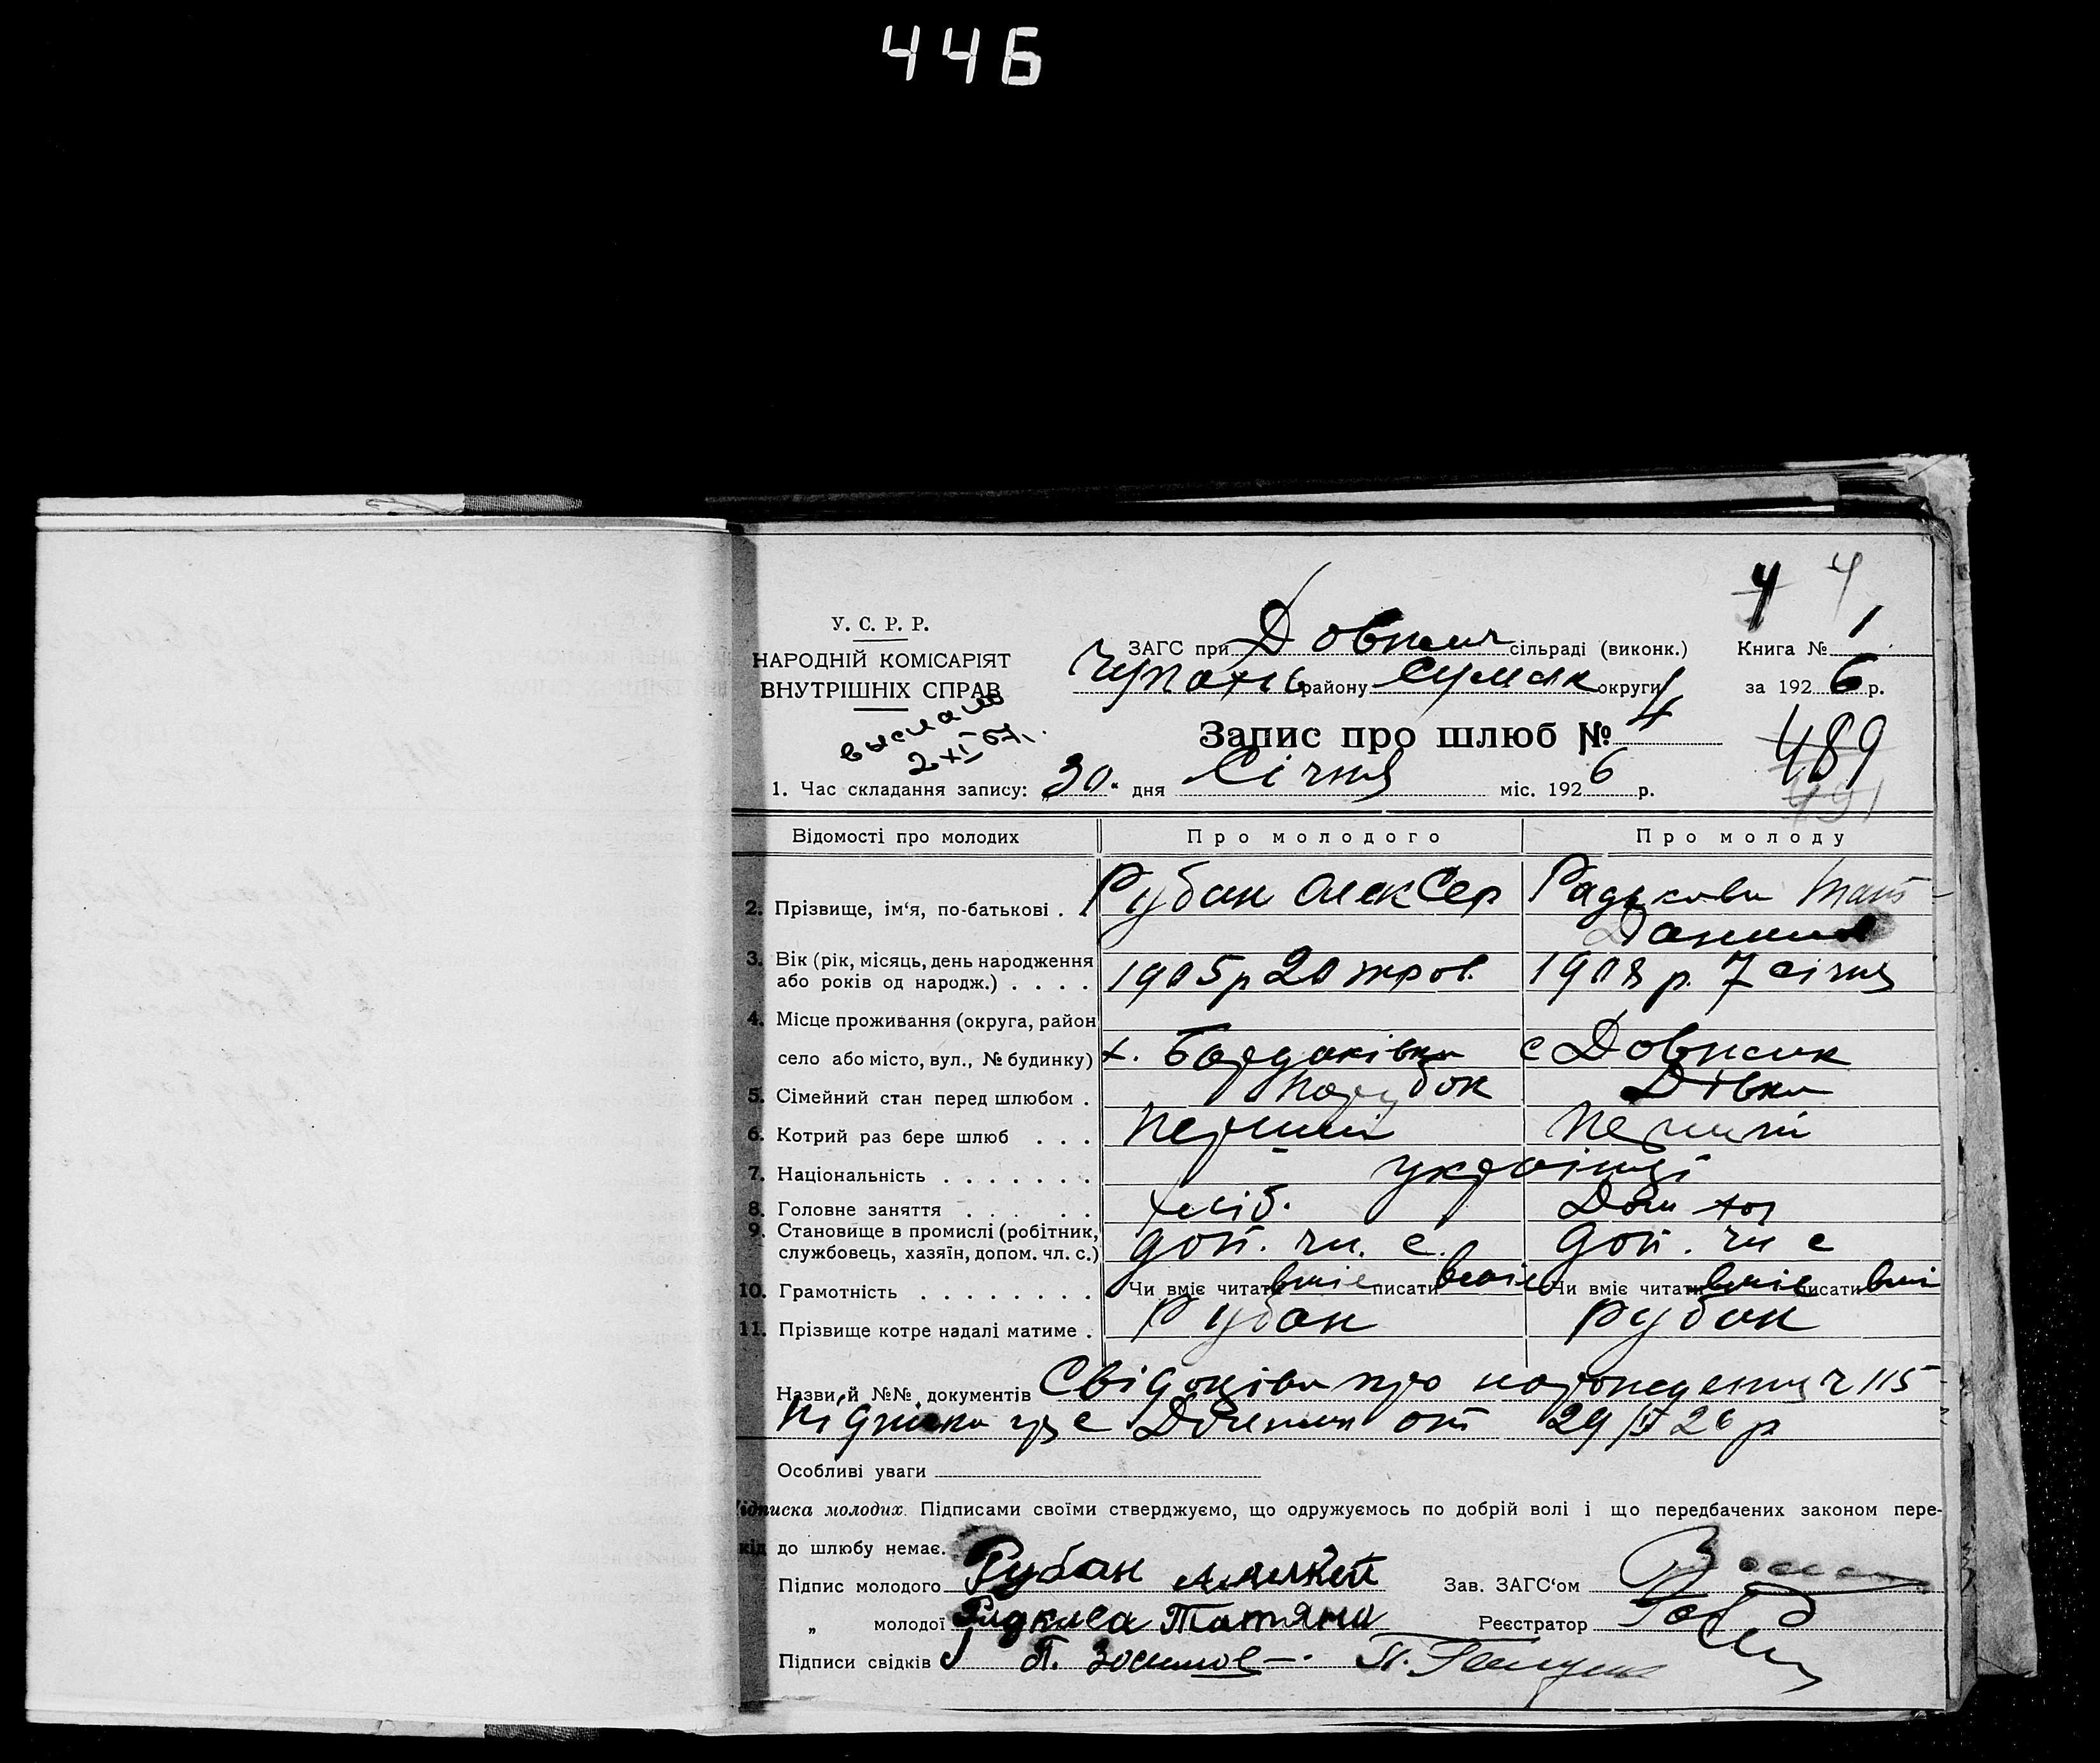 446
4 4
У. С. Р. Р.
НАРОДНІЙ КОМІСАРІЯТ
ВНУТРІШНІХ СПРАВ
ЗАГС при сільраді (виконк.) Книга № 1
району Сумск округи за 1926 р.
выслано
2 XI 67 г.
Запис про шлюб № 4
489
491
1. Час складання запису: „30. дня Січня міс. 1926 р.
Відомості про молодих Про молодого Про молоду
2. Прізвище, ім‘я, по-батькові . Рубан Олек Сер Радькова Тат-
Данил
3. Вік (рік, місяць, день народження
або років од народж.) . . . . 1905 р 20 трав. 1908 р. 7 січня
4. Місце проживання (округа, район
село або місто, вул., № будинку) х. Бардаківка с Довжик
5. Сімейний стан перед шлюбом . Парубок Дівка
6. Котрий раз бере шлюб . . . Перший Перший
7. Національність . . . . . . . українці
8. Головне заняття . . . . . . хліб. Дом хоз
9. Становище в промислі (робітник,
службовець, хазяїн, допом. чл. с.) доп. чл. с. доп. чл с
10. Грамотність . . . . . . . . Чи вміє читати вміє писати вміє Чи вміє читати вміє писати вмі
11. Прізвище котре надалі матиме . Рубан Рубан
Назви й №№ документів Свідоцтва про народження ч 115
Підписка с от 29/I 26 р
Особливі уваги
Підписка молодих. Підписами своїми стверджуємо, що одружуємось по добрій волі і що передбачених законом пере-
кід до шлюбу немає.
Підпис молодого Рубан Зав. ЗАГС‘ом
„ молодої Татяна Реєстратор
Підписи свідків П.